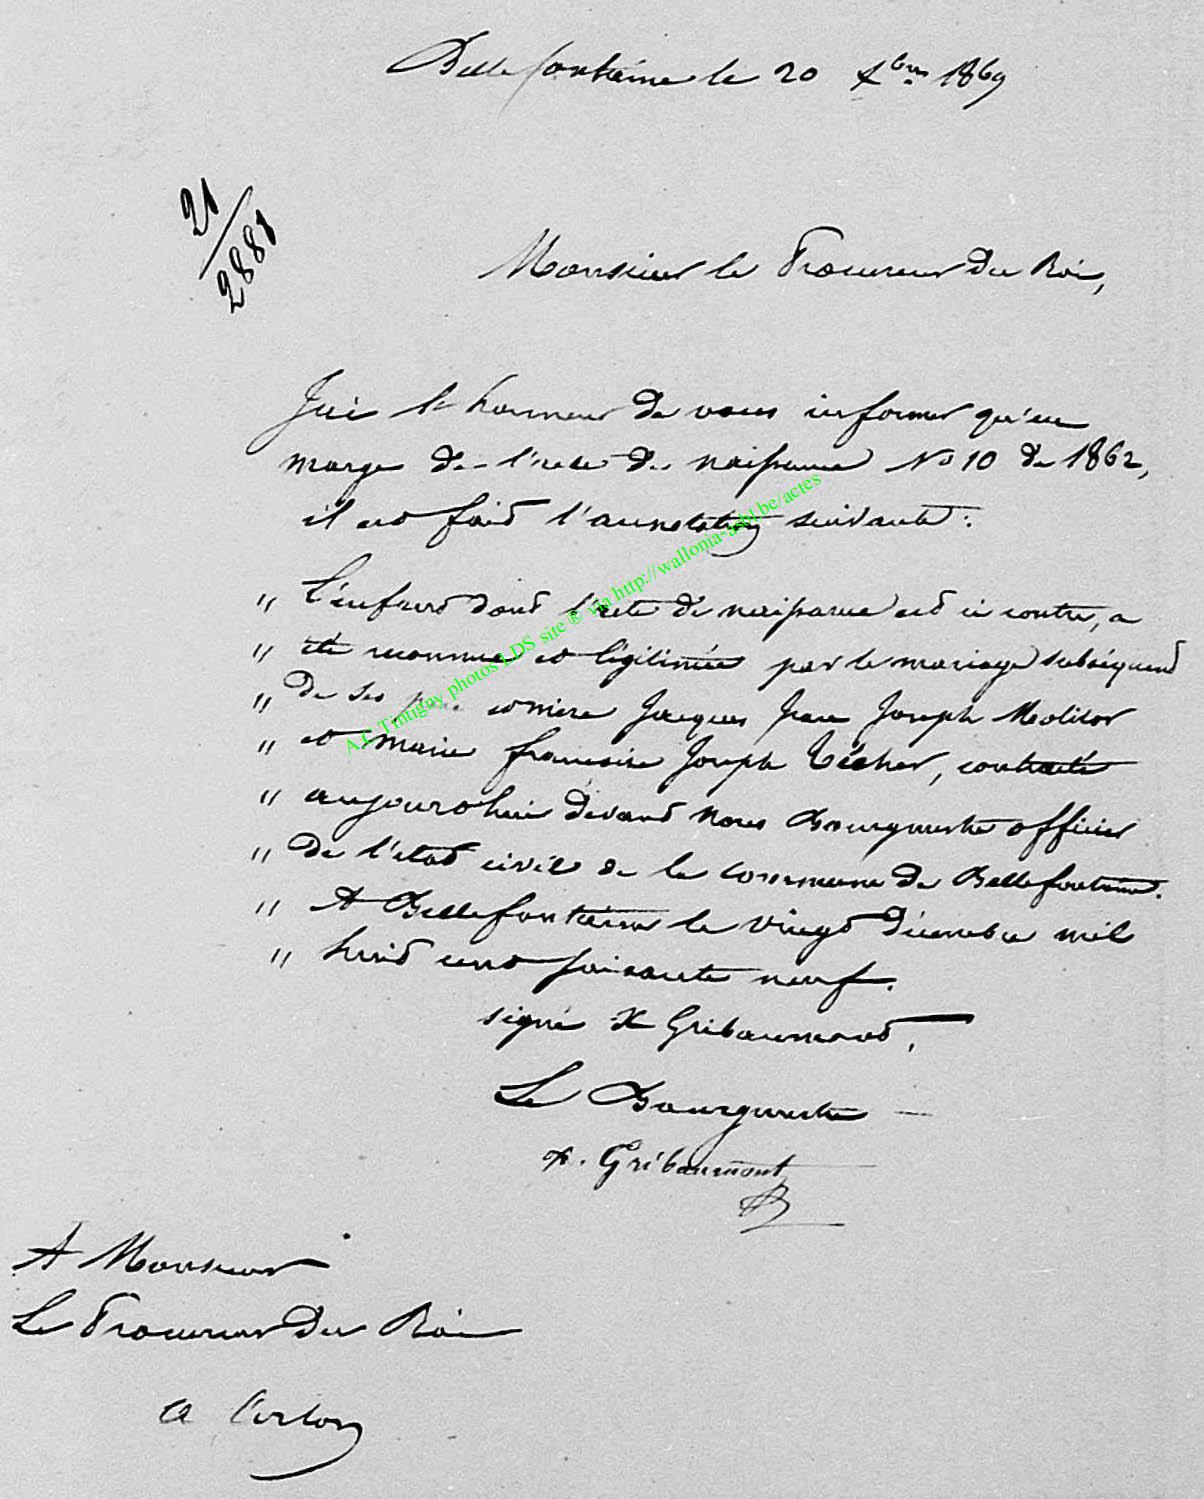 Bellefontaine le 20 Xbre 1869
21/2881
Monsieur le Procureur du Roi,
J'ai l'honneur de vous informer qu'en
marge de l'acte de naissance No 10 de 1862,
il est fait l'annotation suivante :
" L'enfant dont l'acte de naissance est ci contre, a
" été reconnue et légitimée par le mariage subséquent
" de ses père et mère Jacques Jean Joseph Molitor
" et Marie françoise Joseph Técher, contracté
" aujourd'hui devant nous Bourgmestre officier
" de l'état civil de la commune de Bellefontaine.
" A Bellefontaine le vingt décembre mil
" huit cent soixante neuf.
signé X Gribaumont,
Le Bourgmestre
X. Gribaumont
A Monsieur
Le Procureur du Roi
a Arlon
A.C Tintigny photos LDS site ® via http://wallonia-asbl.be/actes